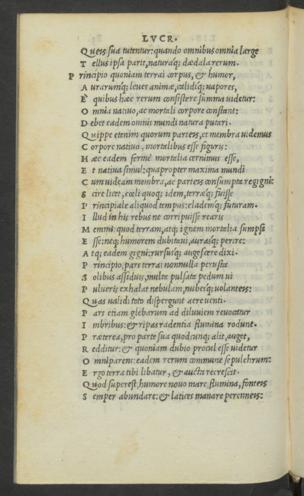 LVCR.
Queis sua tutentur: quando omnibus omnia large
Tellus ipsa parit, naturaq; dædala rerum.
Principio quoniam terrai corpus, & humor,
Aurarumq; leues animæ, calidiq; uapores,
E quibus hæc rerum consistere summa uidetur:
Omnia natiuo, ac mortali corpore constant:
Debet eadem omnis mundi natura putari.
Quippe etenim quorum parteis, et membra uidemus
Corpore natiuo, mortalibus esse figuris:
Hæc eadem fermè mortalia cernimus esse,
Et natiua simul: quapropter maxima mundi
Cum uideam membra, ac parteis consumpta regigni:
Scire licet, cœli quoq; idem, terræq; fuisse
Principiale aliquod tempus: clademq; futuram.
Illud in his rebus ne corripuisse rearis
Memmi: quod terram, atq; ignem mortalia sumpsi
Esse: neq; humorem dubitaui, aurasq; perire:
Atq; eadem gigni: rursusq; augescere dixi.
Principio, pars terrai nonnulla perusta
Solibus assiduis, multa pulsata pedum ui
Pulueris exhalat nebulam, nubesq; uolanteis:
Quas ualidi toto dispergunt aere uenti.
Pars etiam glebarum ad diluuiem reuocatur
Imbribus: & ripas radentia flumina rodunt.
Præterea, pro parte sua quodcunq; alit, auget,
Redditur: & quoniam dubio procul esse uidetur
Omniparens: eadem rerum commune sepulchrum:
Ergo terra tibi libatur, & aucta recrescit.
Quod superest, humore nouo mare, flumina, fonteis
Semper abundare: & latices manare perenneis: